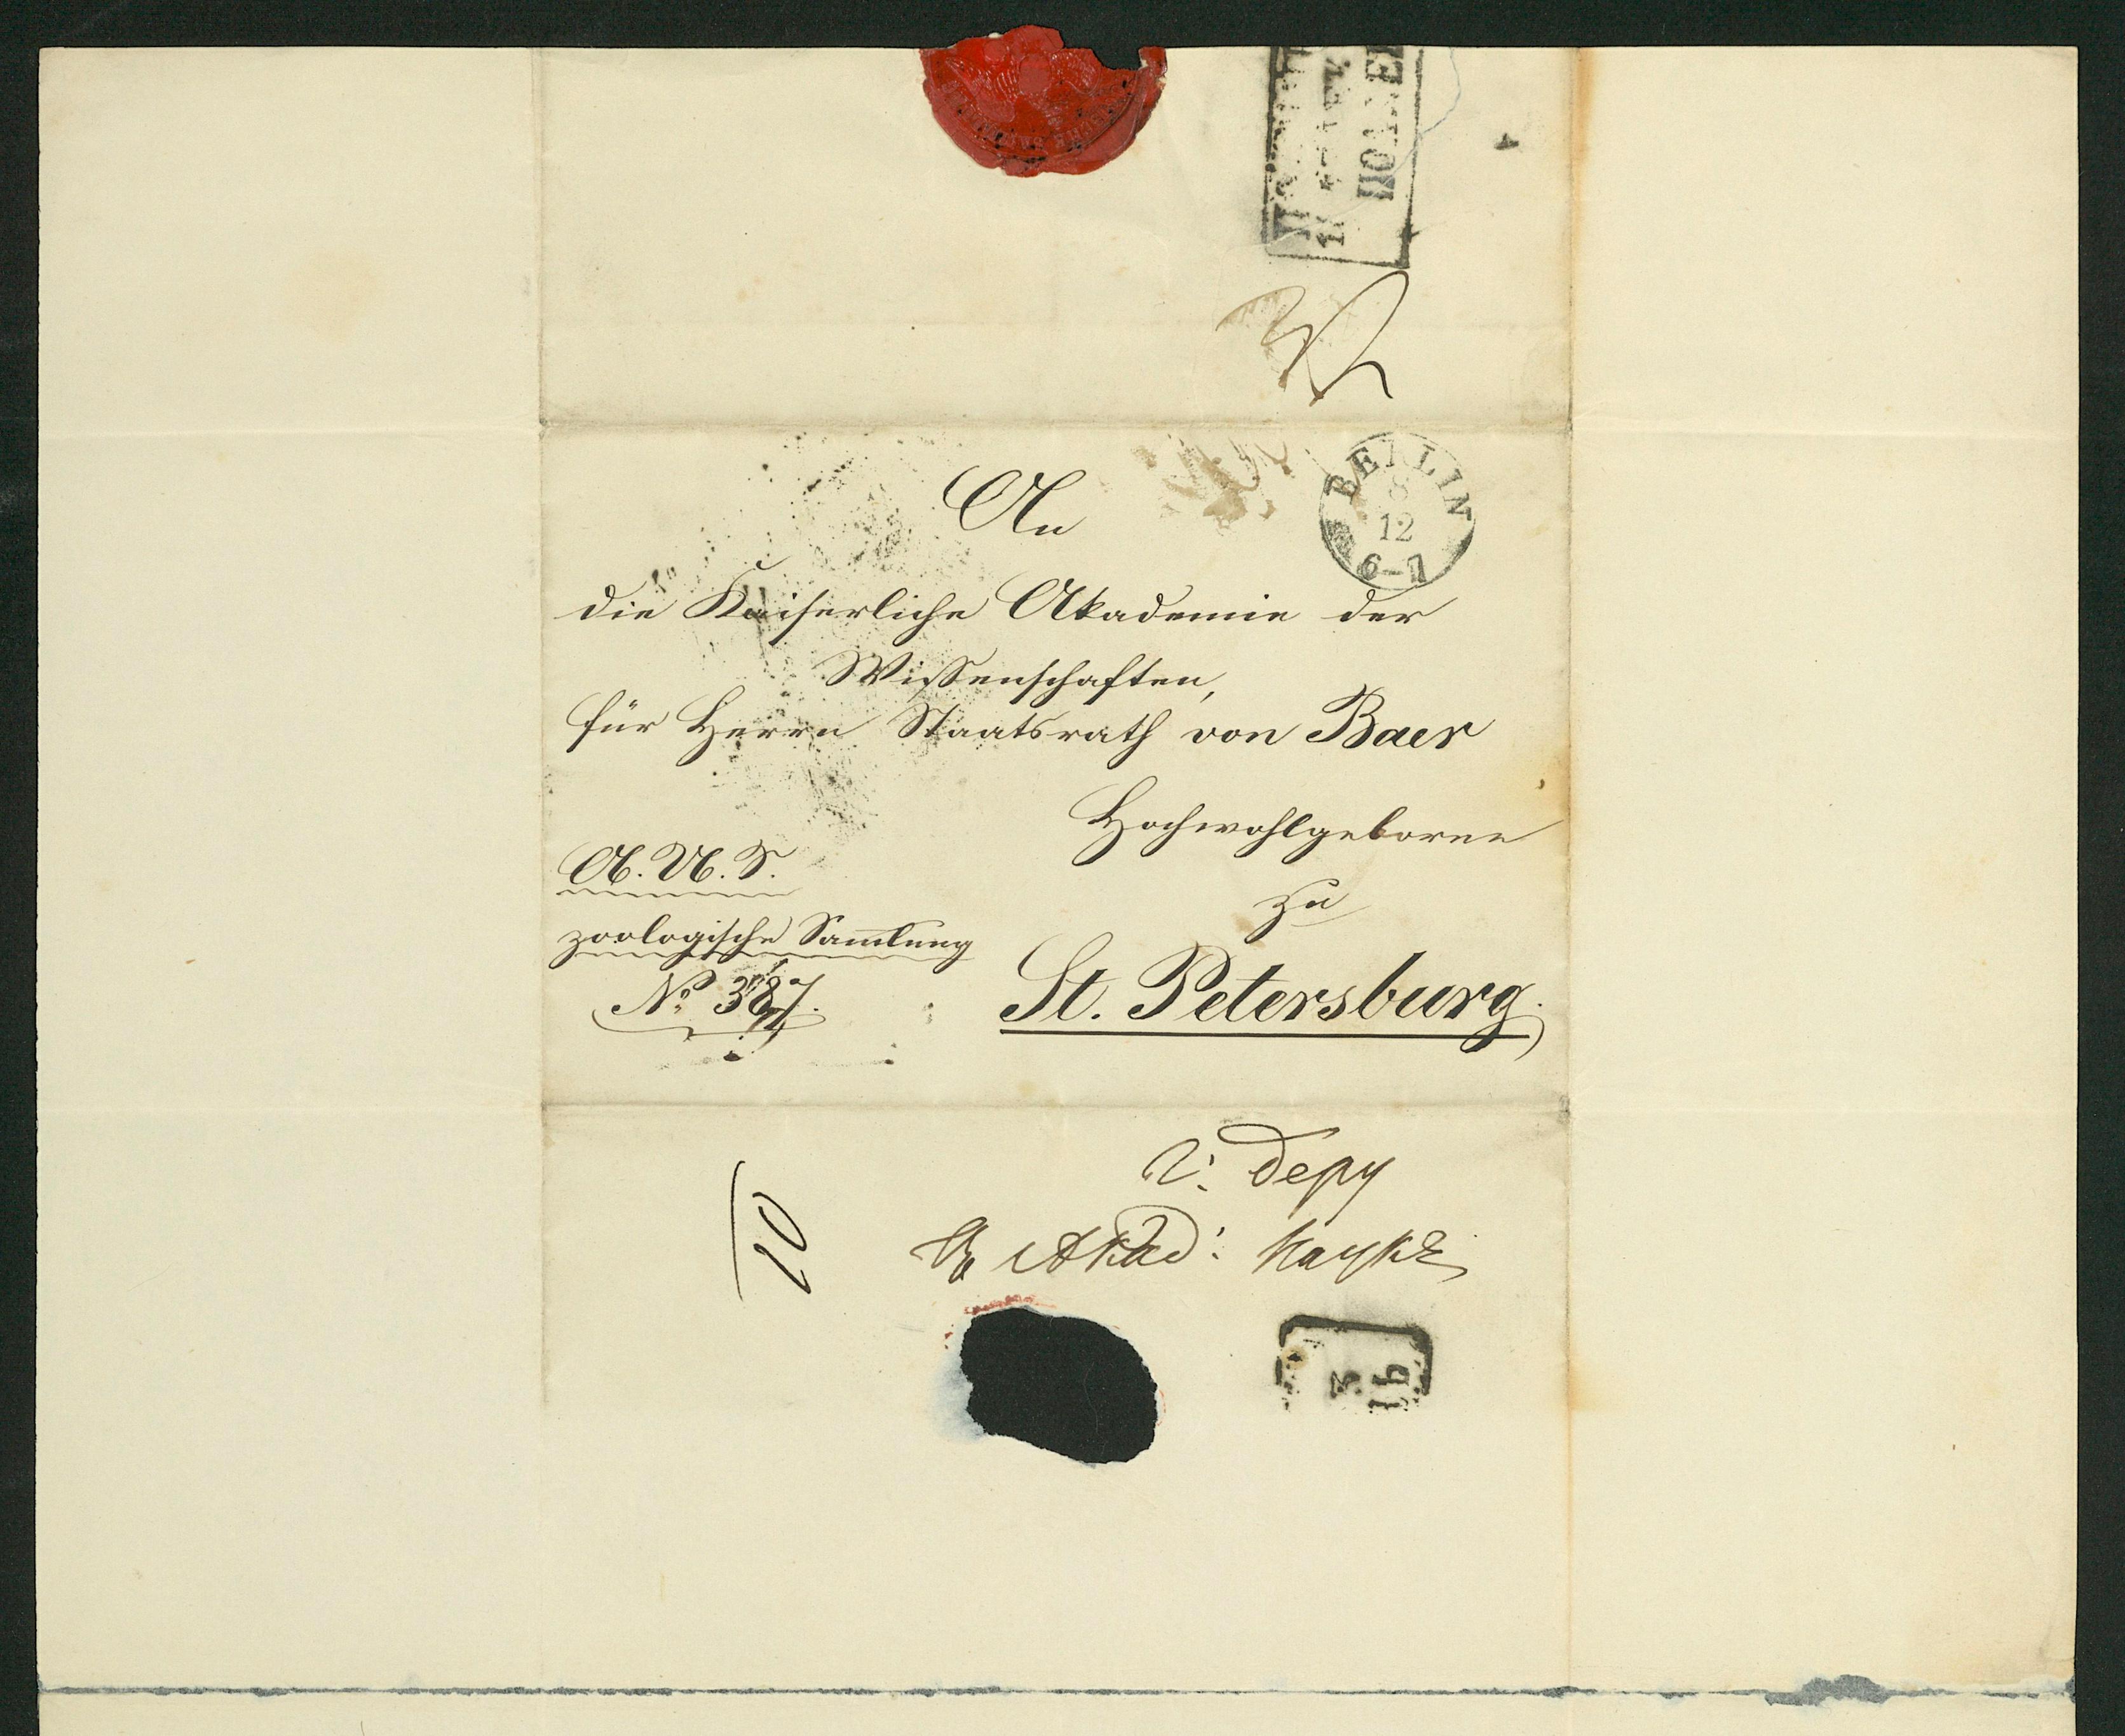 BERLIN
8
12
6-7
An
die Kaiserliche Akademie der
Wissenschaften,
für Herrn Staatsrath von Baer
Hochwohlgeboren
zu
St. Petersburg.
A. U. S.
zoologische Sam̄lung
No 387.
Г: Беру
Въ Акад: Наукъ
10